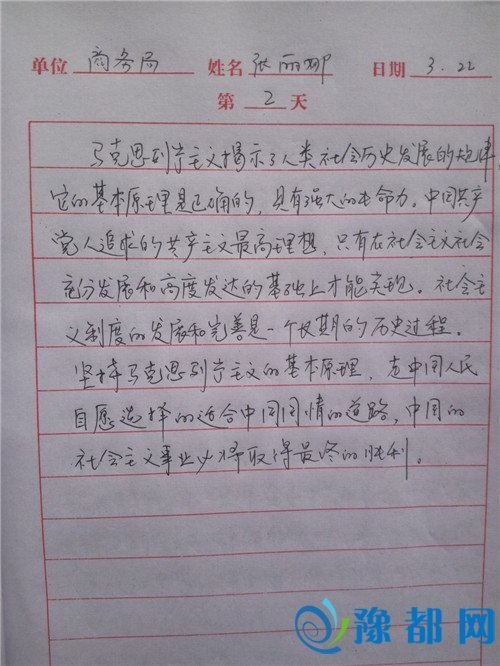 单位 商务局 姓名 张丽娜 日期 3.22
第 2 天
马克思列宁主义揭示了人类社会历史发展的规律
它的基本原理是正确的,具有强大的生命力。中国共产
党人追求的共产主义最高理想,只有在社会主义社会
充分发展和高度发达的基础上才能实现。社会主
义制度的发展和完善是一个长期的历史过程。
坚持马克思列宁主义的基本原理,走中国人民
自愿选择的适合中国国情的道路,中国的
社会主义事业必将取得最终的胜利。
豫都网